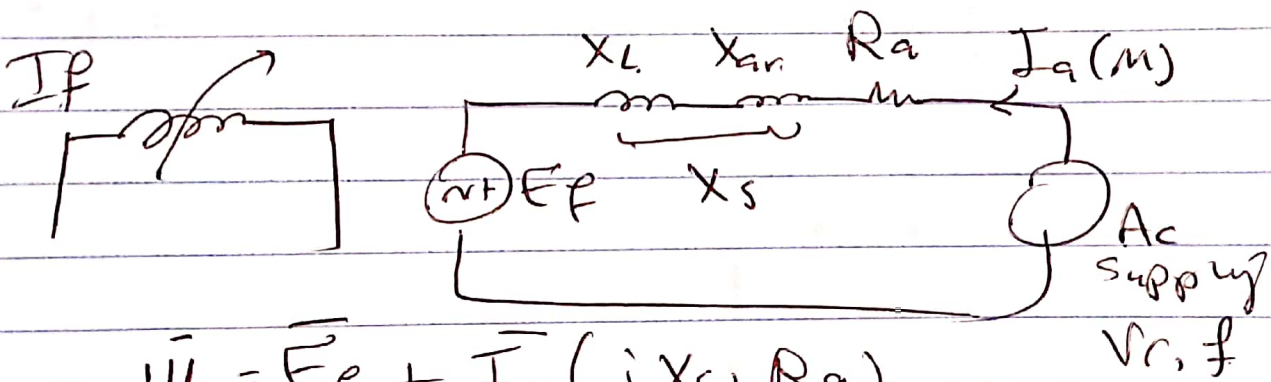 If
XL Xar Ra Ia(M)
Ef Xs
Ac
supply
f
Ef + I (jXs, Ra)